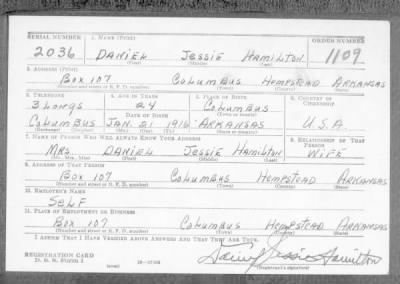 SERIAL NUMBER 1. NAME (Print) ORDER NUMBER
2036 DANIEL JESSIE HAMILTON 1109
(First) (Middle) (Last)
2. ADDRESS (Print)
Box 107 Columbus HEMPSTEAD ARKANSAS
(Number and street or R. F. D. number) (Town) (County) (State)
3. TELEPHONE 4. AGE IN YEARS 5. PLACE OF BIRTH 6. COUNTRY OF CITIZENSHIP
3 Longs 24 Columbus
DATE OF BIRTH
Columbus JAN. 21 1916 ARKANSAS U.S.A.
(Exchange) (Number) (Mo.) (Day) (Yr.) (State or country)
7. NAME OF PERSON WHO WILL ALWAYS KNOW YOUR ADDRESS 8. RELATIONSHIP OF THAT PERSON
MRS DANIEL JESSIE HAMILTON WIFE
(Mr., Mrs., Miss) (First) (Middle) (Last)
9. ADDRESS OF THAT PERSON
Box 107 Columbus HEMPSTEAD ARKANSAS
(Number and street or R. F. D. number) (Town) (County) (State)
10. EMPLOYER'S NAME
SELF
11. PLACE OF EMPLOYMENT OR BUSINESS
Box 107 Columbus HEMPSTEAD ARKANSAS
(Number and street or R. F. D. number) (Town) (County) (State)
I AFFIRM THAT I HAVE VERIFIED ABOVE ANSWERS AND THAT THEY ARE TRUE.
REGISTRATION CARD
D. S. S. Form 1 (over) Daniel Jessie Hamilton
(Registrant's signature)